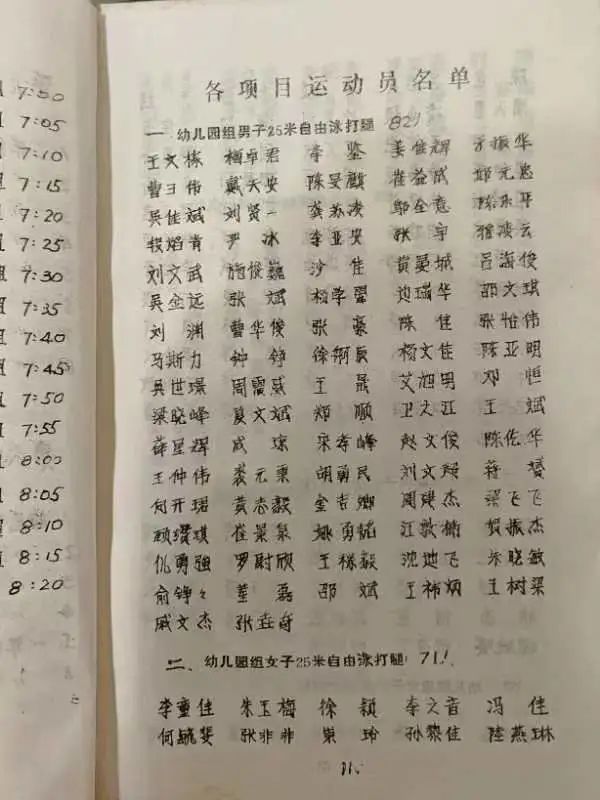 7:00
7:05
7:10
7:15
7:20
7:25
7:30
7:35
7:40
7:45
7:50
7:55
8:00
8:05
8:10
8:15
8:20
各项目运动员名单
一、幼儿园组男子25米自由泳打腿 82人
王文栋 梅卓君 李鉴 姜佳辉 振华
曹曰伟 戴天安 陈旻麒 崔益成 邱元忠
吴佳斌 刘贤一 龚苏凌 邬全意 陈乐平
钱焰青 尹冰 李亚安 张宇 凌云
刘文武 施俊巍 沙佳 黄晏城 吕海俊
吴金远 张斌 杨学翟 边瑞华 邵文琪
刘渊 曹华俊 张豪 陈佳 张怡伟
马斯力 钟铮 徐翱辰 杨文佳 陈亚明
吴世璟 周震威 王晟 艾旭明 邓恒
梁晓峰 夏文斌 郑顺 卫之江 王斌
薛星辉 戚琼 宋孝峰 赵文俊 陈佐华
王仲伟 裘元秉 胡勇民 刘文 蒋赟
何开珺 黄志毅 金吉卿 周建杰 梁飞飞
顾瓒琪 崔景泉 姚勇韬 江敦楠 贺振杰
仇勇强 罗尉欣 王秭毅 沈地飞 朱晓敏
俞铮々 董磊 邵斌 王祎炳 王树梁
戚文杰 张垚奇
二、幼儿园组女子25米自由泳打腿 71人
李童佳 朱玉梅 徐颖 李文音 冯佳
何毓斐 张非非 柴玲 孙黎佳 陆燕琳
11.